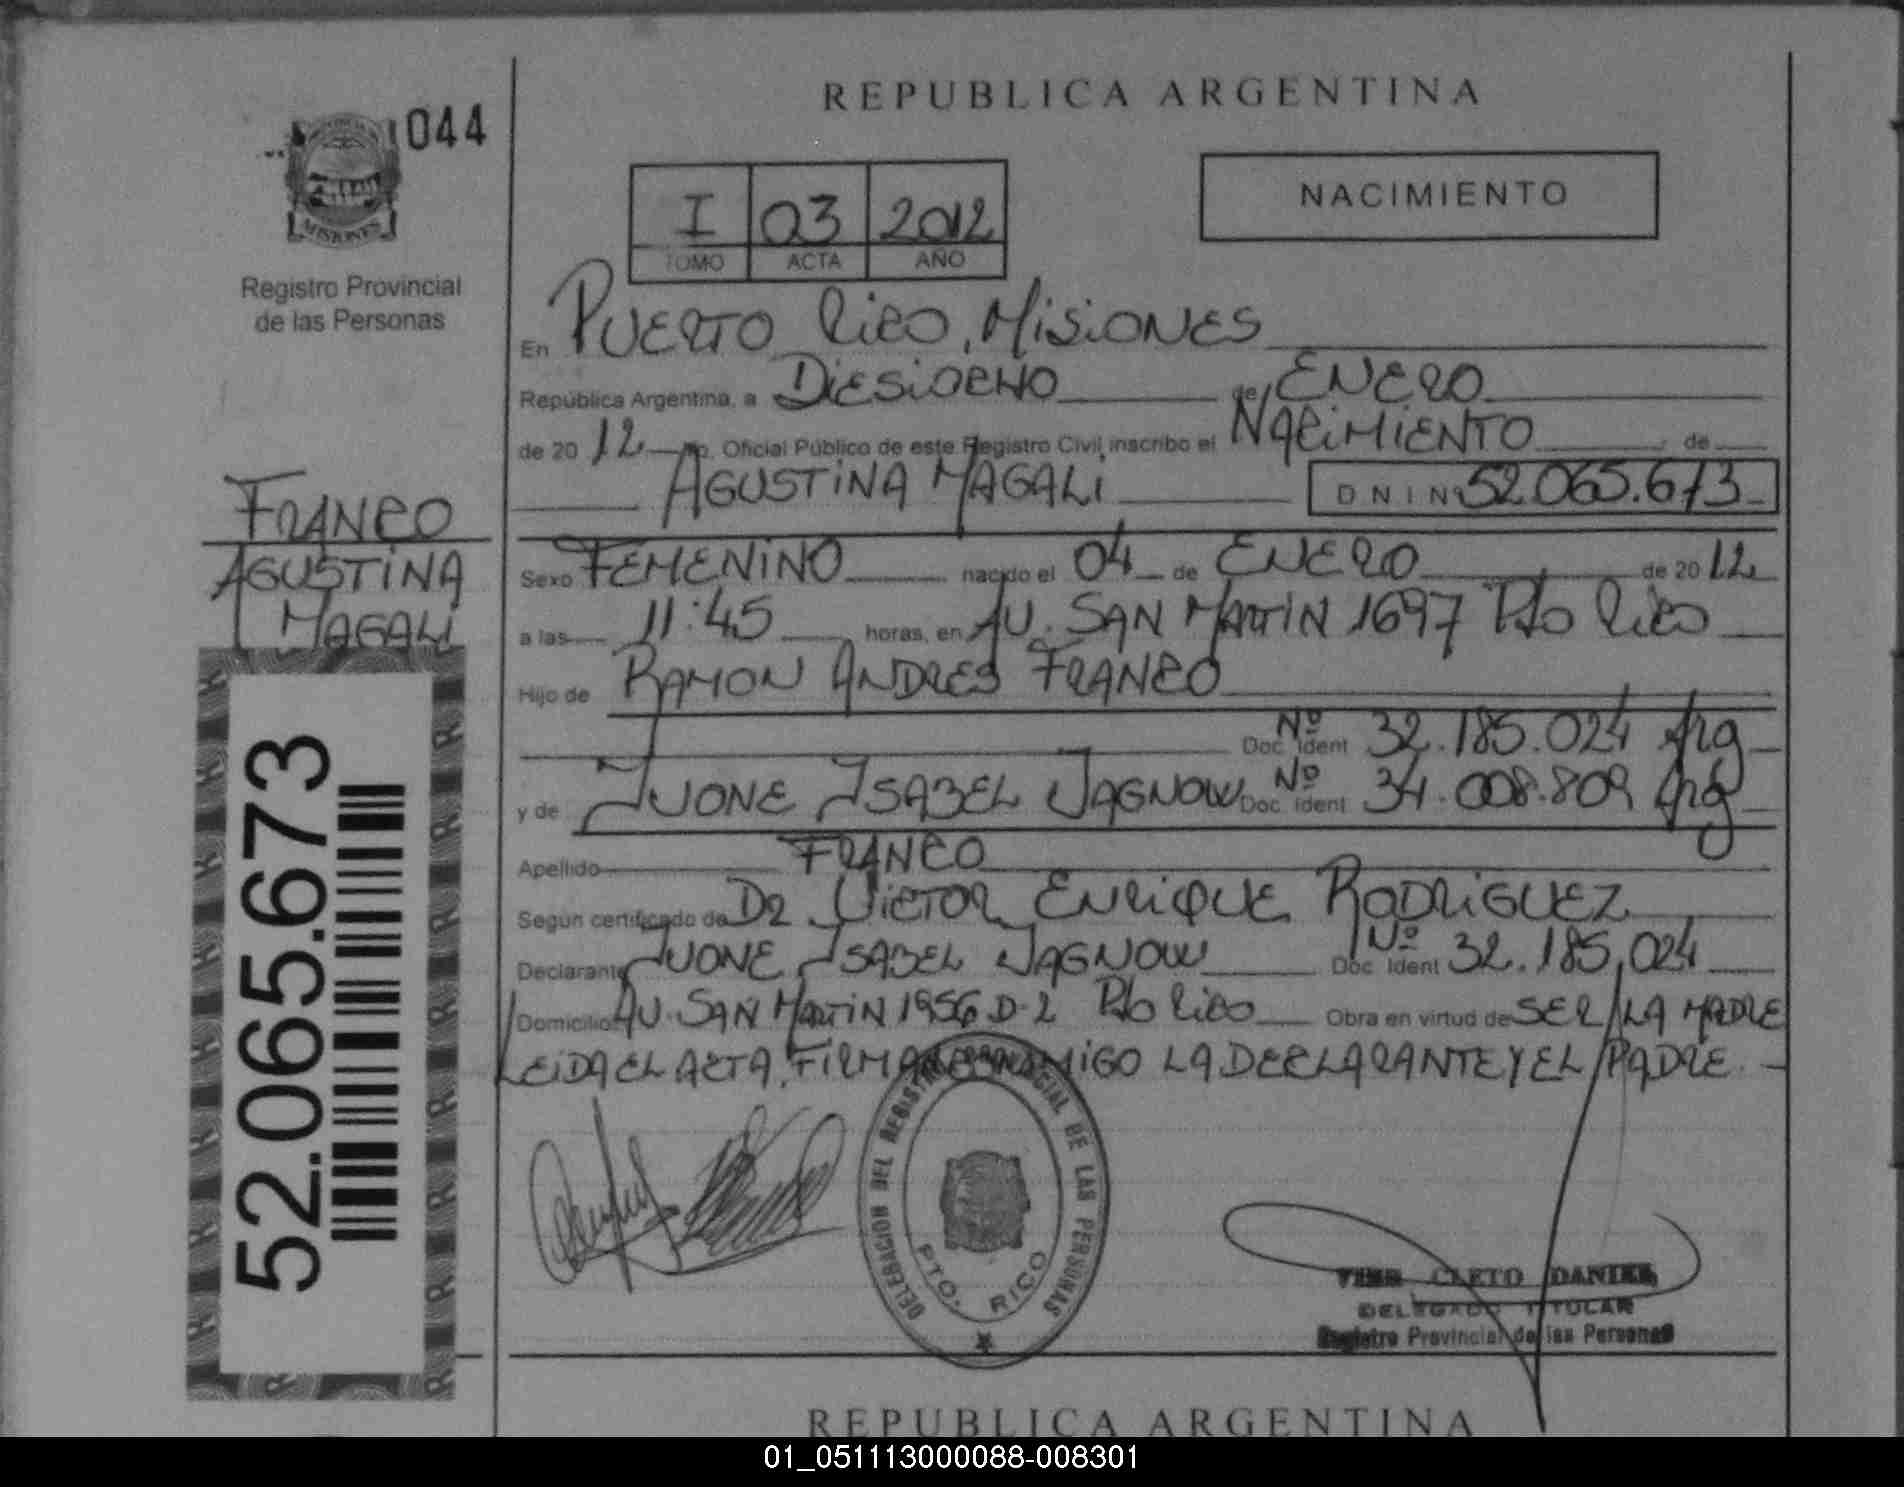 REPUBLICA ARGENTINA
044
MISIONES
Registro Provincial
de las Personas
NACIMIENTO
I 03 2012
TOMO ACTA AÑO
En PUERTO RICO, MISIONES
República Argentina, a DIESIOCHO de ENERO
de 20 12 Oficial Público de este Registro Civil, inscribo el NACIMIENTO de
AGUSTINA MAGALI DNI Nº 52.065.673
FRANCO
AGUSTINA
MAGALI
52.065.673
Sexo FEMENINO nacido el 04 de ENERO de 20 12
a las 11:45 horas, en AV. SAN MARTIN 1697 Pto Rico
Hijo de RAMON ANDRES FRANCO
Doc. Ident Nº 32.185.024 Arg
y de IVONE ISABEL JAGNOW Doc. Ident Nº 34.008.809 Arg
Apellido FRANCO
Según certificado de DR. VICTOR ENRIQUE RODRIGUEZ
Declarante IVONE ISABEL JAGNOW Doc. Ident Nº 32.185.024
Domicilio AV. SAN MARTIN 1956 D-2 Pto Rico Obra en virtud de SER LA MADRE
LEIDA EL ACTA, FIRMAN CONMIGO LA DECLARANTE Y EL PADRE.
DELEGACION DEL REGISTRO PROVINCIAL DE LAS PERSONAS
PTO. RICO
CLETO DANIEL
DELEGADO TITULAR
Registro Provincial de las Personas
REPUBLICA ARGENTINA
01_051113000088-008301